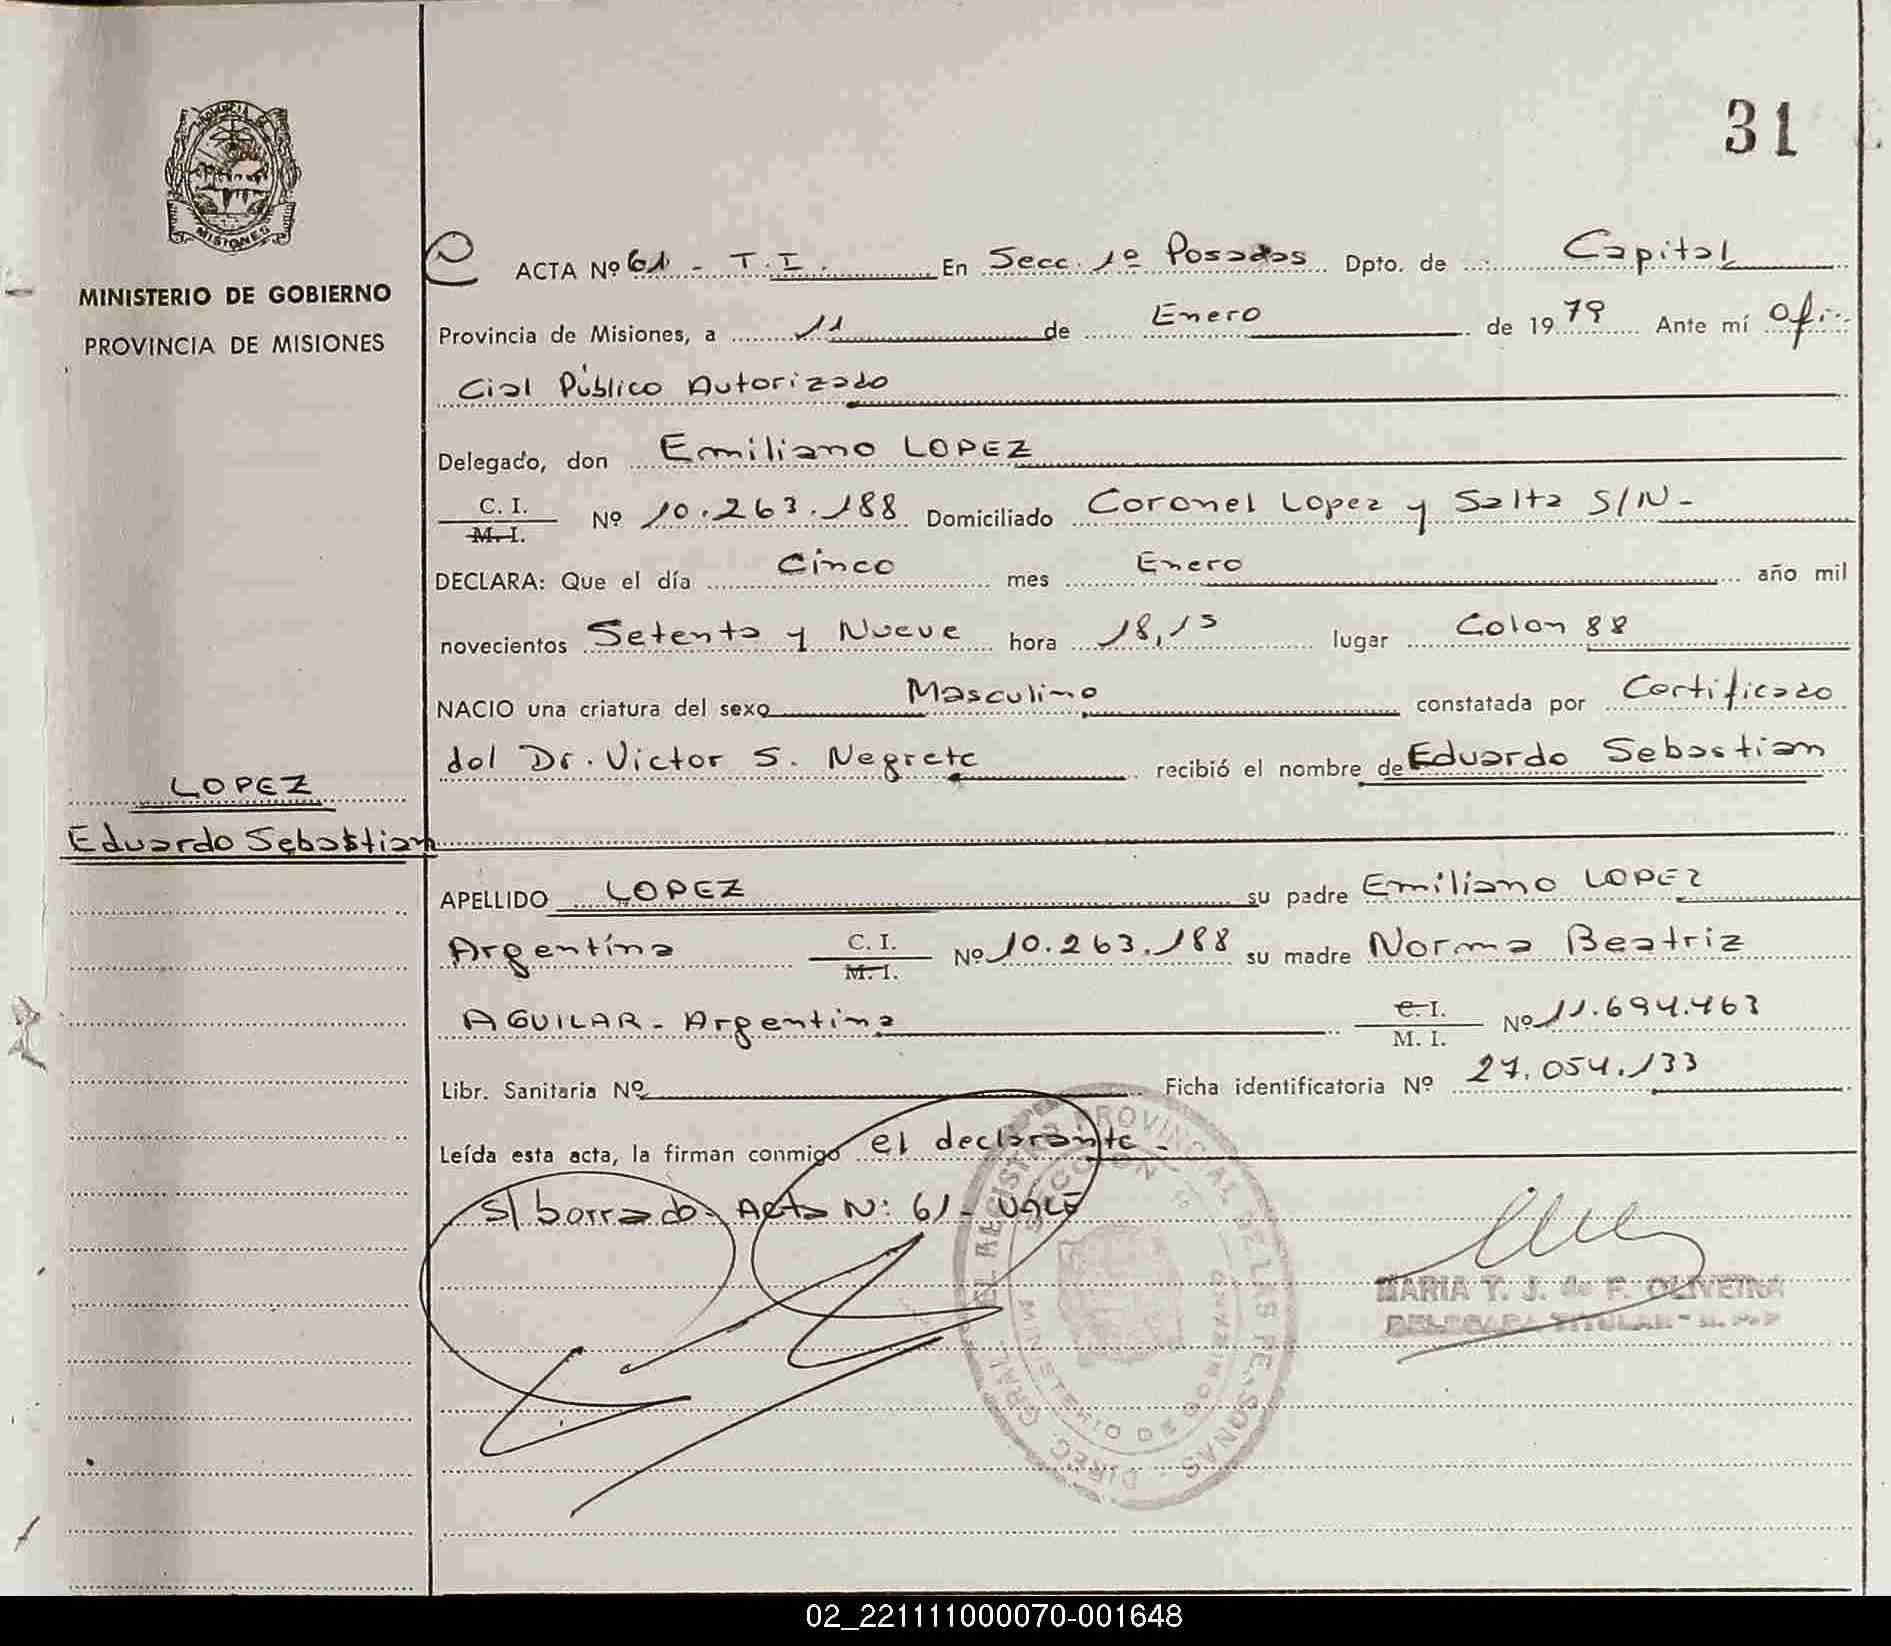 31
MISIONES
MINISTERIO DE GOBIERNO
PROVINCIA DE MISIONES
LOPEZ
Eduardo Sebastian
ACTA Nº 61 - T.I. En Secc. 1º Posadas Dpto. de Capital
Provincia de Misiones, a 11 de Enero de 1979 Ante mí Ofi-
cial Público Autorizado
Delegado, don Emiliano LOPEZ
C. I.
M. I. Nº 10.263.188 Domiciliado Coronel Lopez y Salta S/N-
DECLARA: Que el día Cinco mes Enero año mil
novecientos Setenta y Nueve hora 18,15 lugar Colon 88
NACIO una criatura del sexo Masculino constatada por Certificado
del Dr. Victor S. Negrete recibió el nombre de Eduardo Sebastian
APELLIDO LOPEZ su padre Emiliano LOPEZ
Argentina C. I. M. I. Nº 10.263.188 su madre Norma Beatriz
AGUILAR - Argentina C. I. M. I. Nº 11.694.463
Libr. Sanitaria Nº Ficha identificatoria Nº 27.054.133
Leída esta acta, la firman conmigo el declarante -
S/borrado. Acta Nº 61 - VALE
MARIA T. J. de F. OLIVEIRA
DELEGADA TITULAR - R. P. P.
DIREC. GRAL. DEL REGISTRO PROVINCIAL DE LAS PERSONAS
02_221111000070-001648